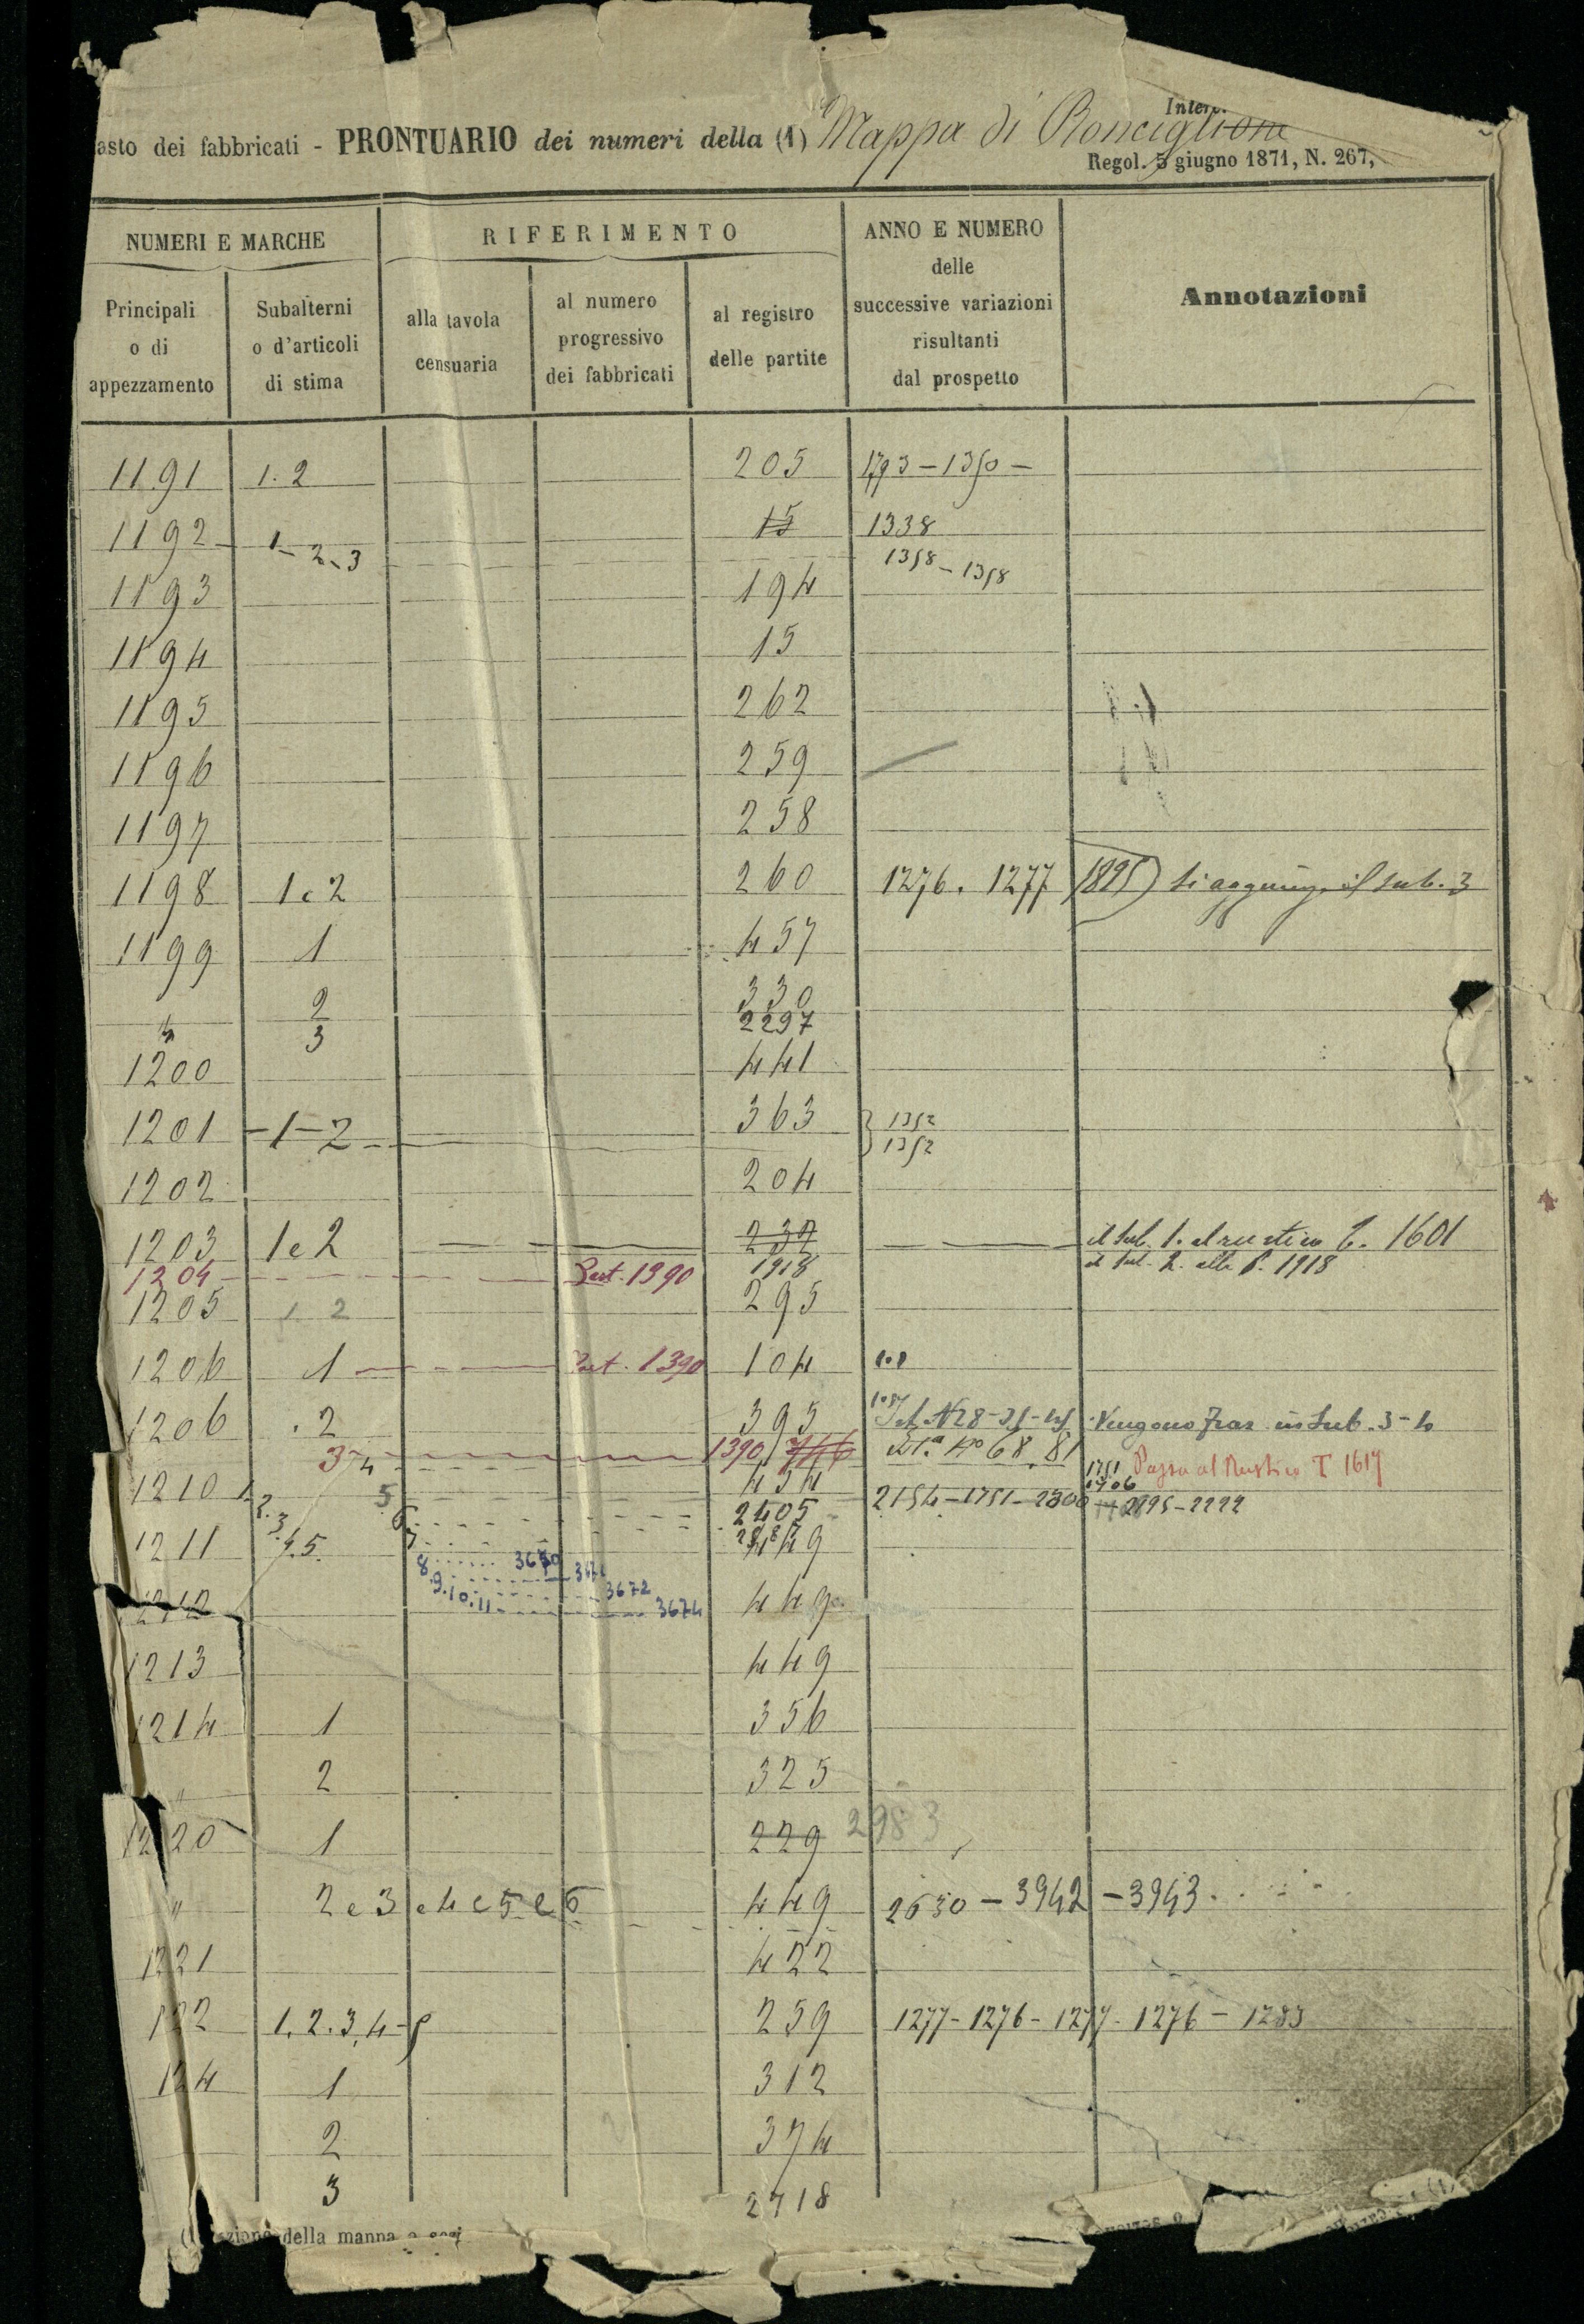 Inter.
asto dei fabbricati - PRONTUARIO dei numeri della (1) Mappa di Ronciglione
Regol. 5 giugno 1871, N. 267,
NUMERI E MARCHE
RIFERIMENTO
ANNO E NUMERO delle successive variazioni risultanti dal prospetto
Annotazioni
Principali o di appezzamento
Subalterni o d'articoli di stima
alla tavola censuaria
al numero progressivo dei fabbricati
al registro delle partite
1191 1.2 205 1793-1350-
1192 1-2-3 15 1338
1358-1358
1193 194
1194 15
1195 262
1196 259
1197 258
1198 1e2 260 1276. 1277 (1895) si aggiunge il sub. 3
1199 1 457
" 2 330
3 2297
1200 441
1201 -1-2- 363 1352
1352
1202 204
1203 1e2 237 il sub. 1. al rustico T. 1601
1918 il sub. 2. alla P. 1918
1204 Part. 1390
1205 1.2 295
1206 1 Part. 1390 104
1206 .2 395 Vengono in sub. 3-4
3-4 1390 68.81
1751 Passa al Rustico T 1617
1906
1210 1.2.3.4.5. 5 6 7 454 2154-1751-2300 2295-2222
2405
1211 449
8 3670 3671
9.10.11 3672
3674
1212 449
1213 449
1214 1 356
" 2 325
1220 1 229 2983
" 2e3e4e5e6 449 2630-3942-3943
1221 422
122 1.2.3.4-5 259 1277-1276-1277-1276-1283
124 1 312
2 374
3 2718
zione della mappa o sezi